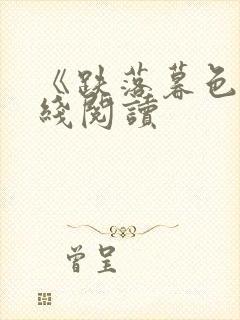 《跌落暮色
綫閱讀
曾呈